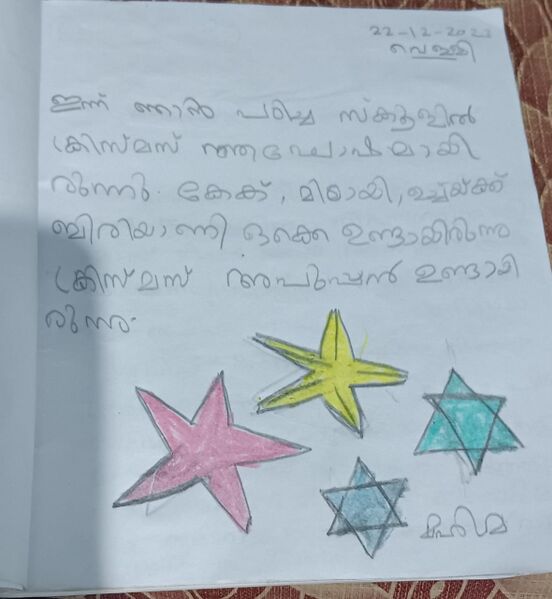 22-12-2023
വെള്ളി
ഇന്ന് ഞാൻ പഠിച്ച സ്കൂളിൽ
ക്രിസ്മസ് ആഘോഷമായി
രുന്നു. കേക്ക്, മിഠായി, ഉച്ചയ്ക്ക്
ബിരിയാണി ഒക്കെ ഉണ്ടായിരുന്നു
ക്രിസ്മസ് അപ്പൂപ്പൻ ഉണ്ടായി
രുന്നു.
മഹിമ